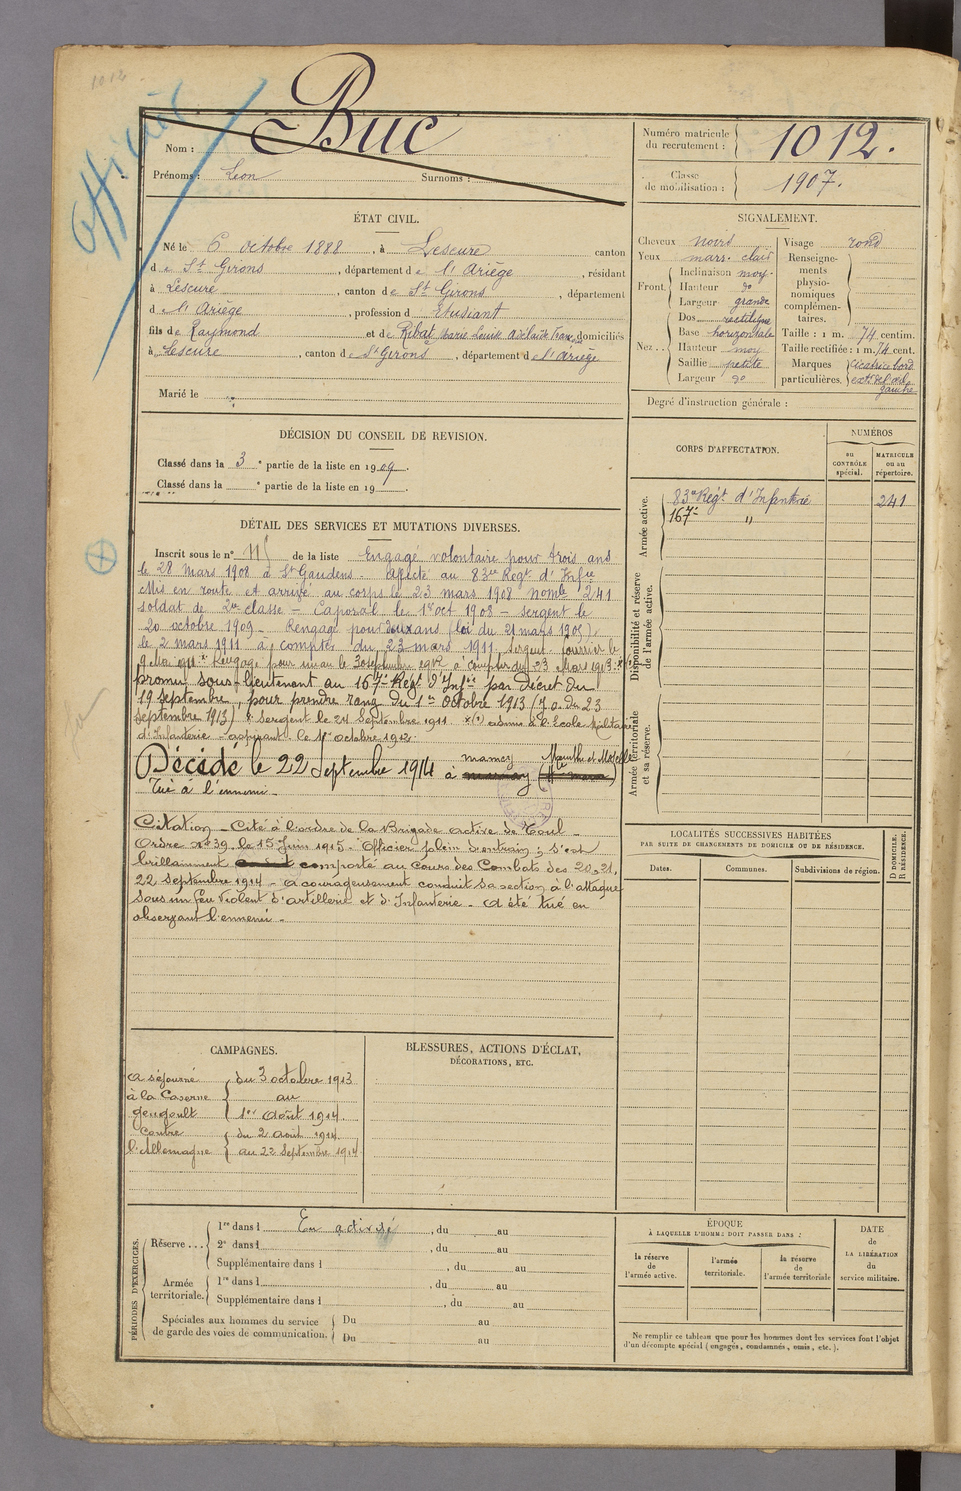 1012
Officier
Nom : Buc
Prénoms : Léon Surnoms :
Numéro matricule
du recrutement : 1012.
Classe
de mobilisation : 1907.
ÉTAT CIVIL.
Né le 6 octobre 1888, à Lescure canton
de St Girons, département de l'Ariège, résidant
à Lescure, canton de St Girons, département
de l'Ariège, profession d'Etudiant
fils de Raymond et de Ribat Marie Louise domiciliés
à Lescure, canton de St Girons, département de l'Ariège
Marié le
SIGNALEMENT.
Cheveux noirs
Yeux mars. clair
Front. Inclinaison moy.
Hauteur do
Largeur grande
Nez.. Dos rectiligne
Base horizontale
Hauteur moy
Saillie petite
Largeur do
Visage rond
Renseigne-
ments
physio-
nomiques
complémen-
taires.
Taille : 1 m. 74 centim.
Taille rectifiée : 1 m. 74 cent.
Marques
particulières. cicatrice bord
gauche
Degré d'instruction générale :
DÉCISION DU CONSEIL DE REVISION.
Classé dans la 3e partie de la liste en 1909.
Classé dans la e partie de la liste en 19 .
DÉTAIL DES SERVICES ET MUTATIONS DIVERSES.
Inscrit sous le n° 115 de la liste Engagé volontaire pour trois ans
le 28 mars 1908 à St Gaudens. Affecté au 83me Régt d'Infie
Mis en route et arrivé au corps le 23 mars 1908 nomb 241
soldat de 2me classe – Caporal le 1er oct 1908 – sergent le
20 octobre 1909 – Rengagé pour deux ans (loi du 21 mars 1905)
le 2 mars 1911 à compter du 23 mars 1911. sergent fourrier le
9 Mai 1911 Rengagé pour un an le 30 septembre 1912 à compter du 23 Mars 1913.
promu sous-lieutenant au 167e Régt d'Infie par décret du
19 septembre, pour prendre rang du 1er Octobre 1913 (J.O. du 23
septembre 1913) Sergent le 24 Septembre 1911 x(1) admis à l'Ecole Militaire
d'Infanterie – aspirant le 1er octobre 1912.
Décédé le 22 Septembre 1914 à mamey Meurthe et Moselle
Tué à l'ennemi.
Citation – Cité à l'ordre de la Brigade active de Toul –
Ordre n° 39 le 15 Juin 1915 – Officier plein d'entrain ; s'est
brillamment comporté au Cours des Combats des 20, 21,
22 septembre 1914 – a courageusement conduit sa section à l'attaque
sous un feu violent d'artillerie et d'Infanterie – A été tué en
observant l'ennemi –
CORPS D'AFFECTATION.
NUMÉROS
au
CONTRÔLE
spécial.
MATRICULE
ou au
répertoire.
Armée active.
83e Régt d'Infanterie 241
167e "
Disponibilité et réserve
de l'armée active.
Armée territoriale
et sa réserve.
LOCALITÉS SUCCESSIVES HABITÉES
PAR SUITE DE CHANGEMENTS DE DOMICILE OU DE RÉSIDENCE.
Dates.
Communes.
Subdivisions de région.
D DOMICILE.
R RÉSIDENCE.
CAMPAGNES.
A séjourné
à la Caserne
gengoult
du 3 octobre 1913
au
1er Août 1914
Contre
l'Allemagne
du 2 août 1914
au 22 Septembre 1914
BLESSURES, ACTIONS D'ÉCLAT,
DÉCORATIONS, ETC.
PÉRIODES D'EXERCICES.
Réserve ... 1re dans l En activité, du au
2e dans l , du au
Supplémentaire dans l , du au
Armée
territoriale. 1re dans l , du au
Supplémentaire dans l , du au
Spéciales aux hommes du service
de garde des voies de communication.
Du au
Du au
ÉPOQUE
À LAQUELLE L'HOMME DOIT PASSER DANS :
la réserve
de
l'armée active.
l'armée
territoriale.
la réserve
de
l'armée territoriale
DATE
de
LA LIBÉRATION
du
service militaire.
Ne remplir ce tableau que pour les hommes dont les services font l'objet
d'un décompte spécial (engagés, condamnés, omis, etc.).